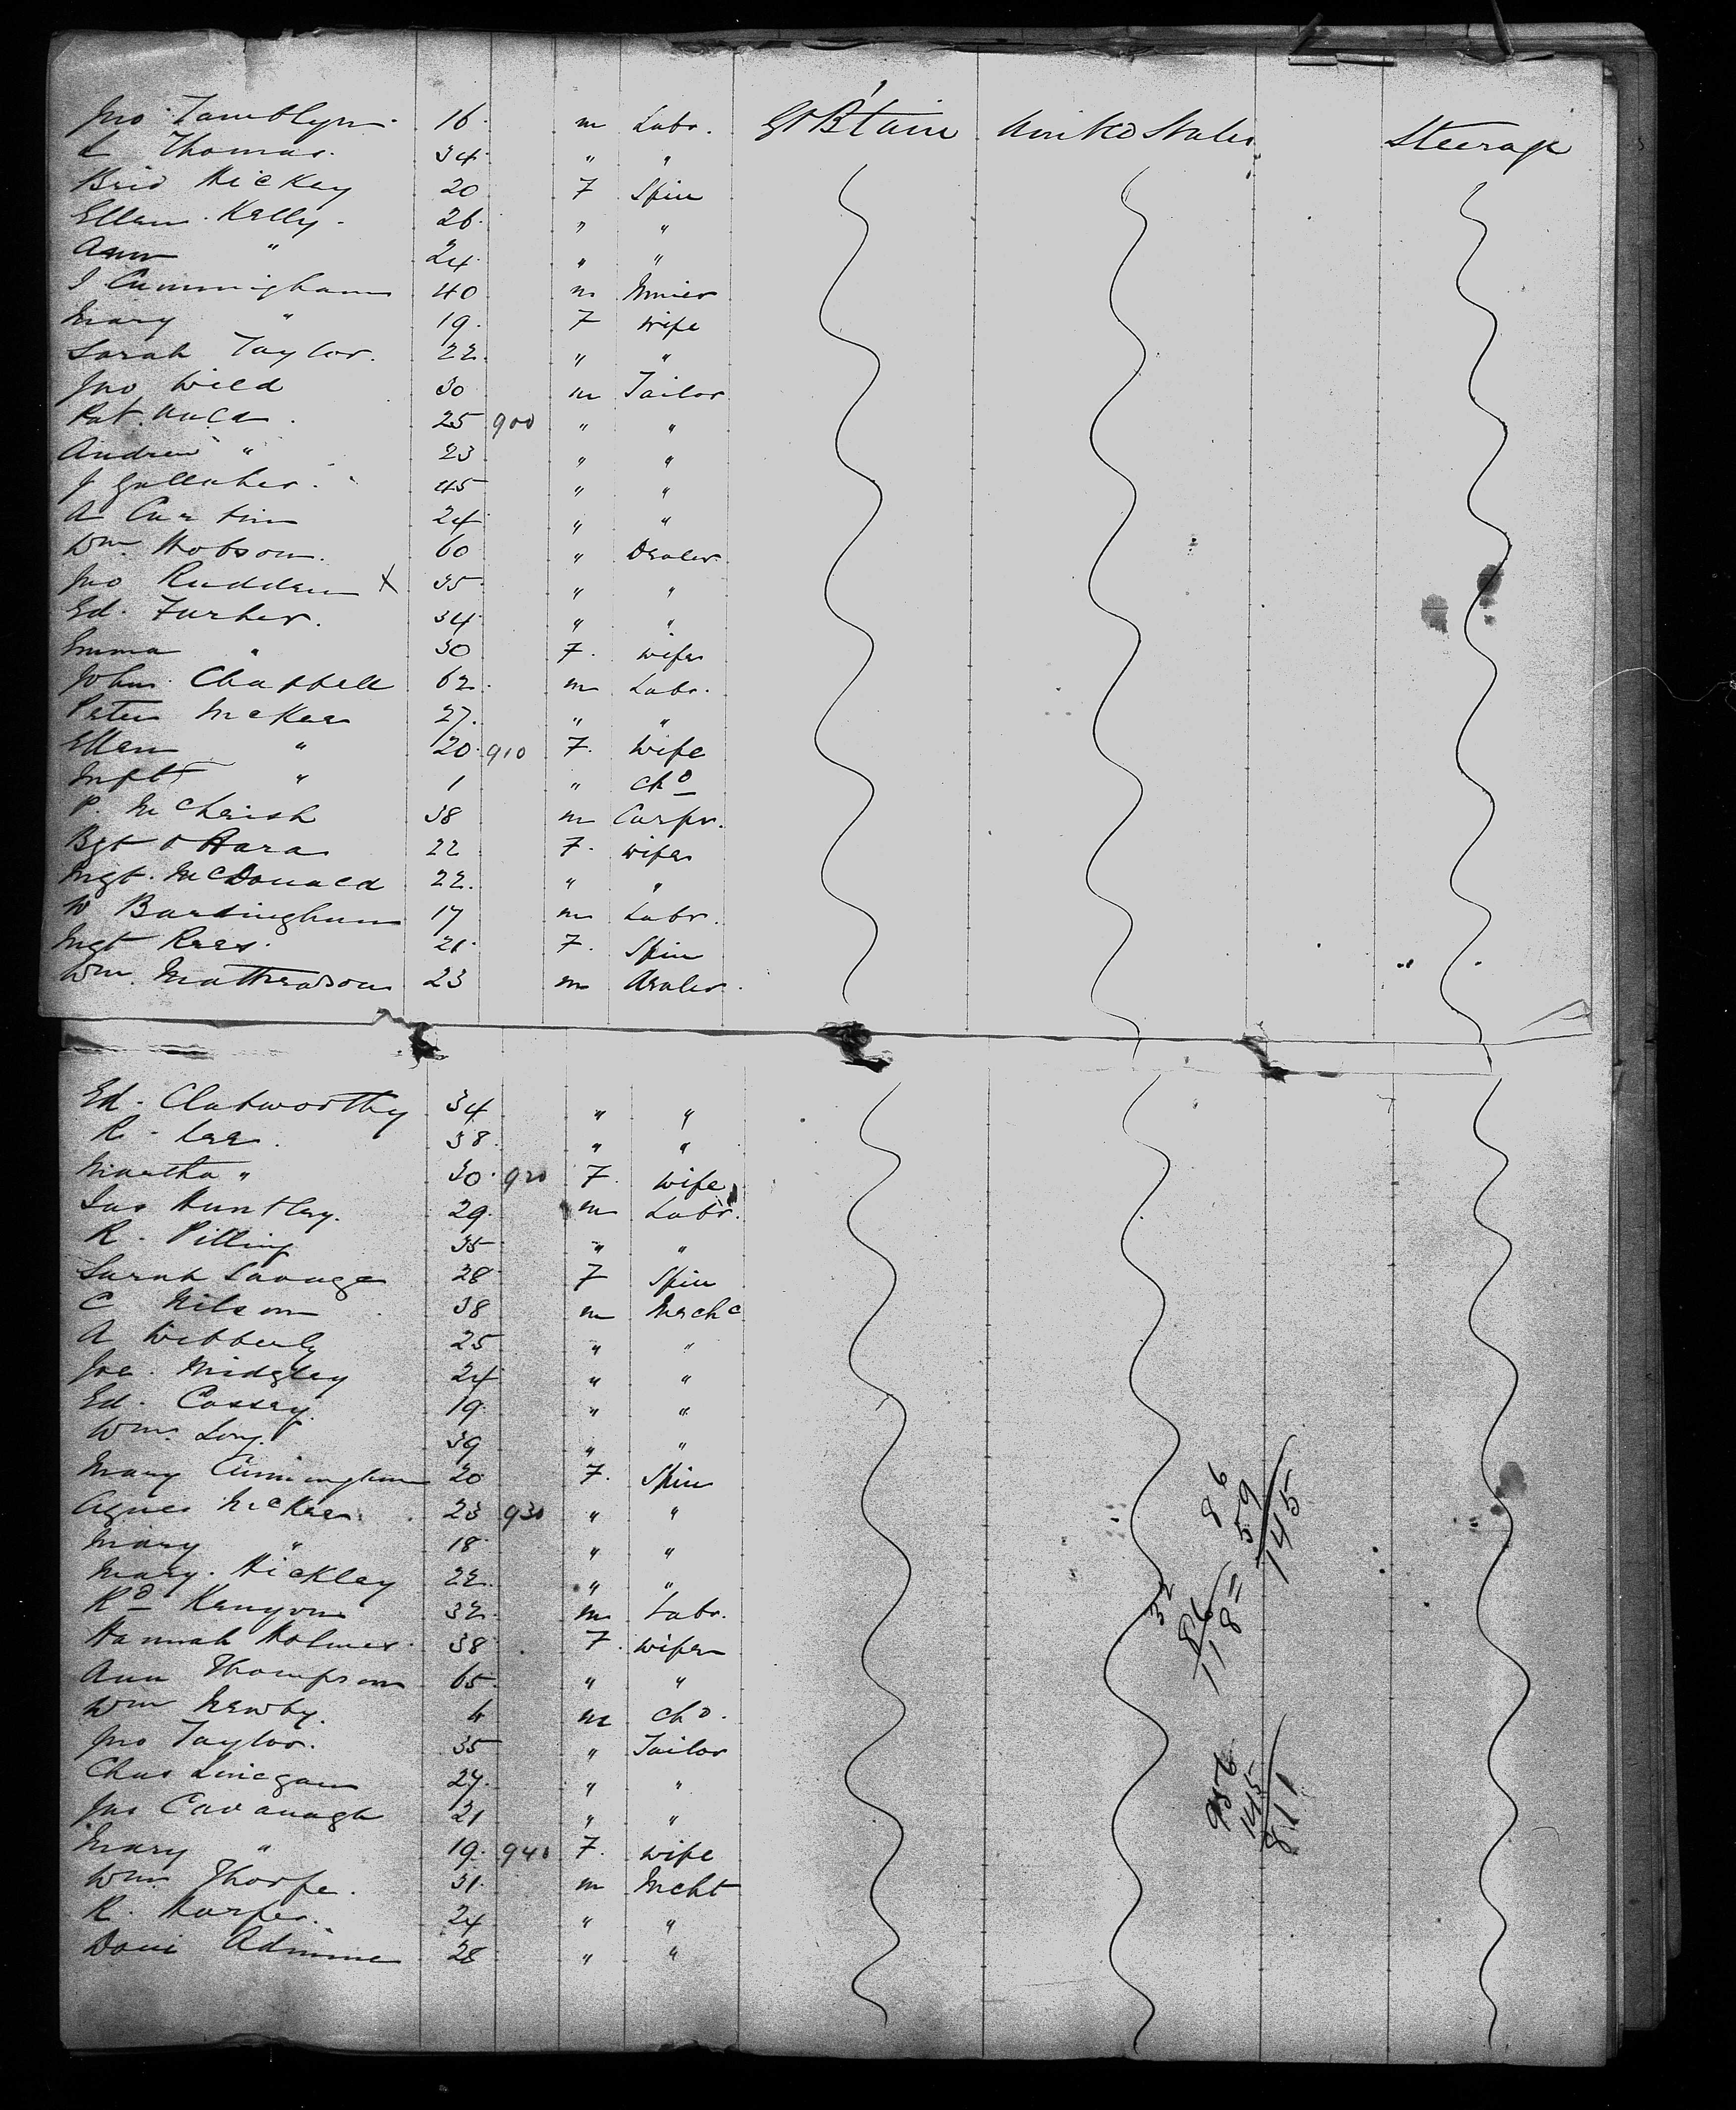 Jno Tamblyn 16 m Labr. Gt B'tain United States Steerage
L Thomas. 34 " "
Brid Hickey 20 F Spin
Ellen Kelly 26 " "
Ann " 24 " "
J Cunningham 40 m Miner
Mary " 19 F Wife
Sarah Taylor. 22 " "
Jno Wild 30 m Tailor
Pat. Auld 25 900 " "
Andrew " 23 " "
J Gallaher 45 " "
A Curtin 24 " "
Wm. Hobson. 60 " Dealer
Jno Rudden X 35 " "
Ed. Furber. 34 " "
Emma " 30 F. Wife
John Chappell 62 m Labr.
Peter McKee 27. " "
Ellen " 20 910 F. Wife
Inft " 1 " Chd
P. McCherish 38 m Carpr.
Bgt O'Hara 22 F. Wife
Mgt. McDonald 22. " "
W Bardingham 17 m Labr.
Mgt Rees. 21 F. Spin
Wm. Mathewson 23 m Dealer
Ed. Clatworthy 34 " "
R. Lee. 38 " "
Martha " 30 920 F. Wife
Jas Huntley. 29 m Labr.
R. Pilling 35 " "
Sarah Savage 28 F Spin
C Nilson 38 m Mechc
A Webberly 25 " "
Joe. Midgley 24 " "
Ed. Cassey. 19 " "
Wm. Long. 39 " "
Mary Cunningham 20 F. Spin
Agnes McKee 23 930 " "
Mary " 18 " "
Mary. Hickley 22 " "
Rd Kenyon 32 m Labr.
Hannah Holmes 38 F. Wife
Ann Thompson 65 " "
Wm Newby. 4 m Chd.
Jno Taylor. 35 " Tailor
Chas Linegan 27. " "
Jas Cavanagh 21 " "
Mary " 19. 940 F. Wife
Wm. Thorpe. 31 m Mcht
R. Harper. 24 " "
Davi 28 " "
86
59
145
32
86
118
956
145
811